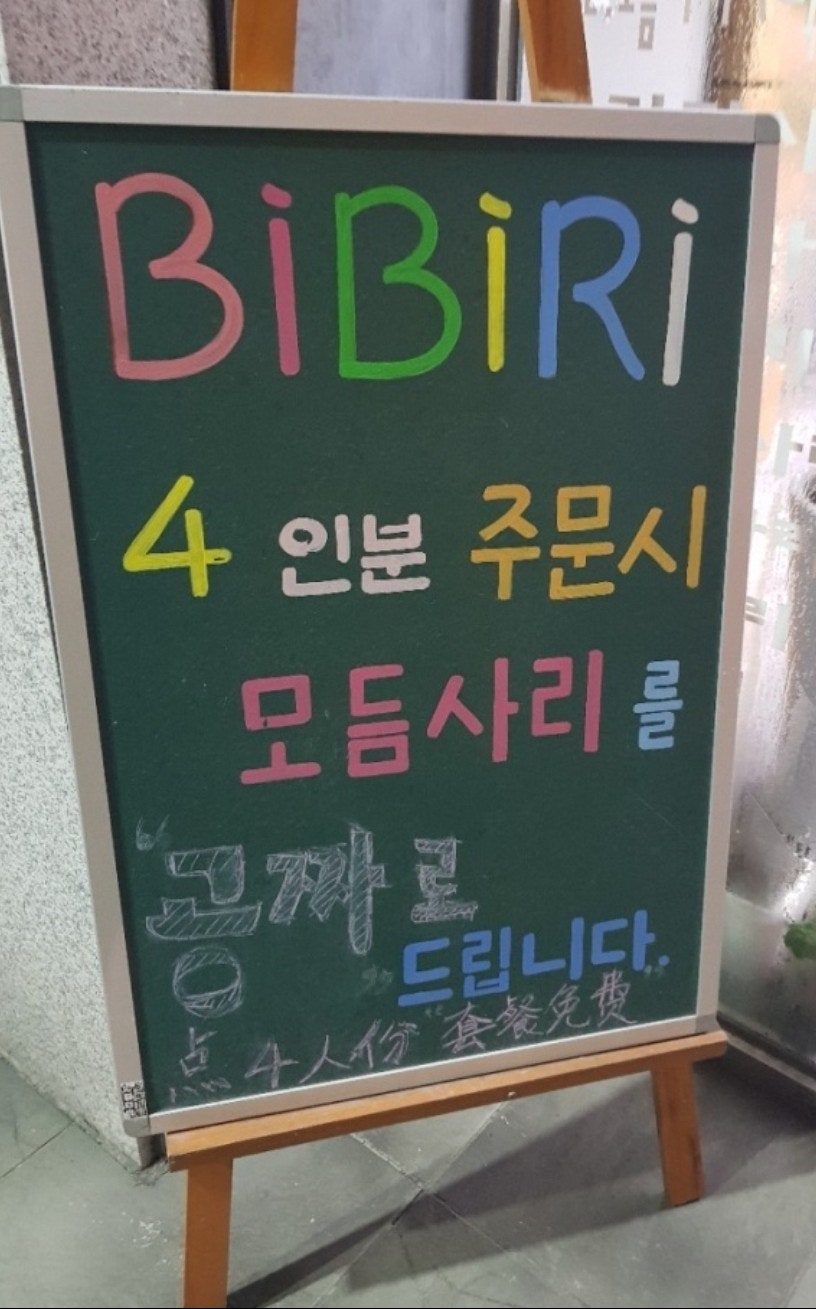 BiBiRi
4 인분 주문시
모듬사리를
"공짜로
드립니다.
点 4人份 "套餐免费"